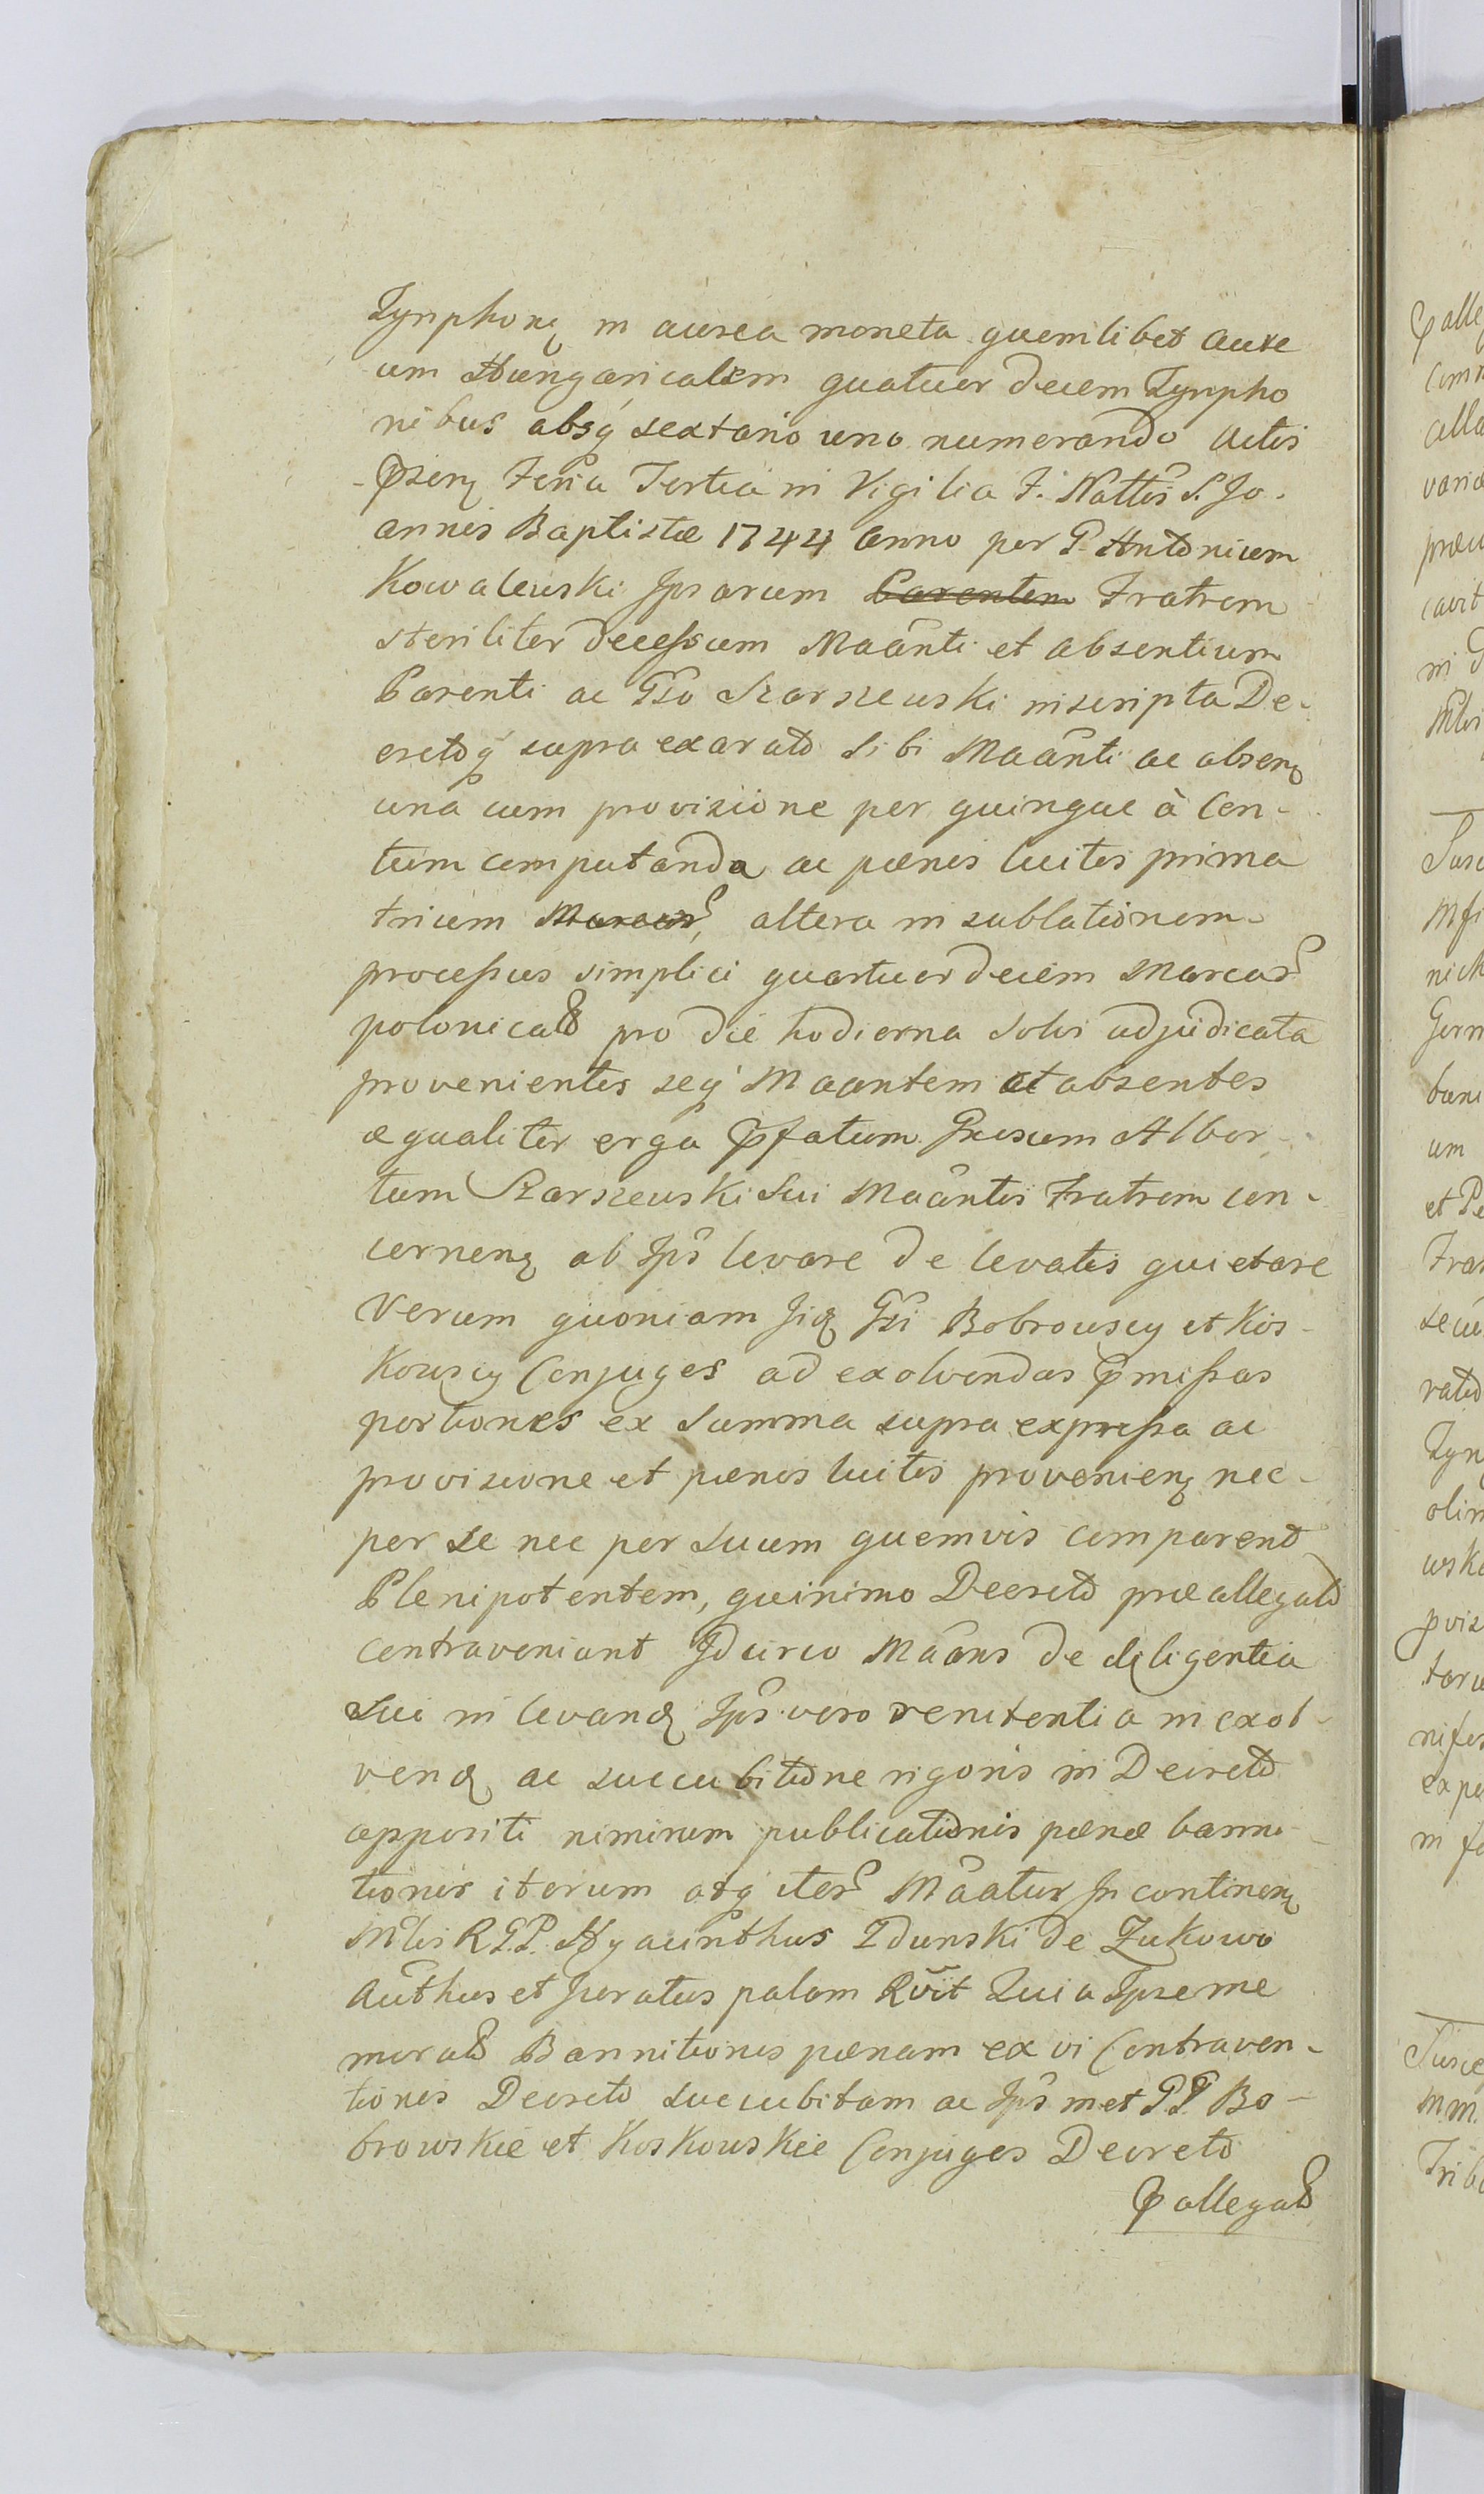 Tynphonę in aurea moneta quemlibet aure
um Hungaricalem quatuor decem Tynpho
nibus absq́ sextario uno numerando Actis
p̄senę Feria Tertia in Vigilia F. Nattis S. Jo.
annis Baptistæ 1744 Anno per P. Antonium
Kowalewski Ipsorum Parentem Fratrem
steriliter decessum Maãnti et absentium
Parenti ac Gso Szarszewski inscripta De-
cretoq́ supra exarato Sibi Maãnti ac absenę
una cum provisione per quinque à Cen-
tum computanda ac pænis luitis prima
trium Marcar, altera in sublationem
processus simplici quartuordecem Marcar
polonical pro die hodierna Solvi adjudicata
provenientes seq́ Maantem et absentes
æqualiter erga p̄fatum Gnesum Alber-
tum Szarszewski Sui Maãntis Fratrem con-
cernenę ab Ips̃ levare de levatis quietare
Verum quoniam iidę Gsi Bobrowscy et Kos-
kowscy Conjuges ad exolvendas p̄missas
portiones ex Summa supra expressa ac
provisione et pænis luitis provenienę nec
per se nec per Suum quemvis comparent
Plenipotentem, quinimo Decreto præallegato
contraveniant Idcirco Maãns de diligentia
Sui in levandę Ips̃ vero renitentia in exol-
vendę ac succubitione rigoris in Decreto
appositi nimirum publicationis pænæ banni-
tionis iterum atq́ iter Maãtur In continenę
Mlis R. G. P. Hyacinthus Zdunski de Żukowo
Authus et Juratus palam Rvit Quia Ipse me
morat Bannitionis pænam ex vi Contraven-
tionis Decreto succubitam ac Ips̃met P.P. Bo-
browskie et Koskowskie Conjuges Decreto
p̄allegat